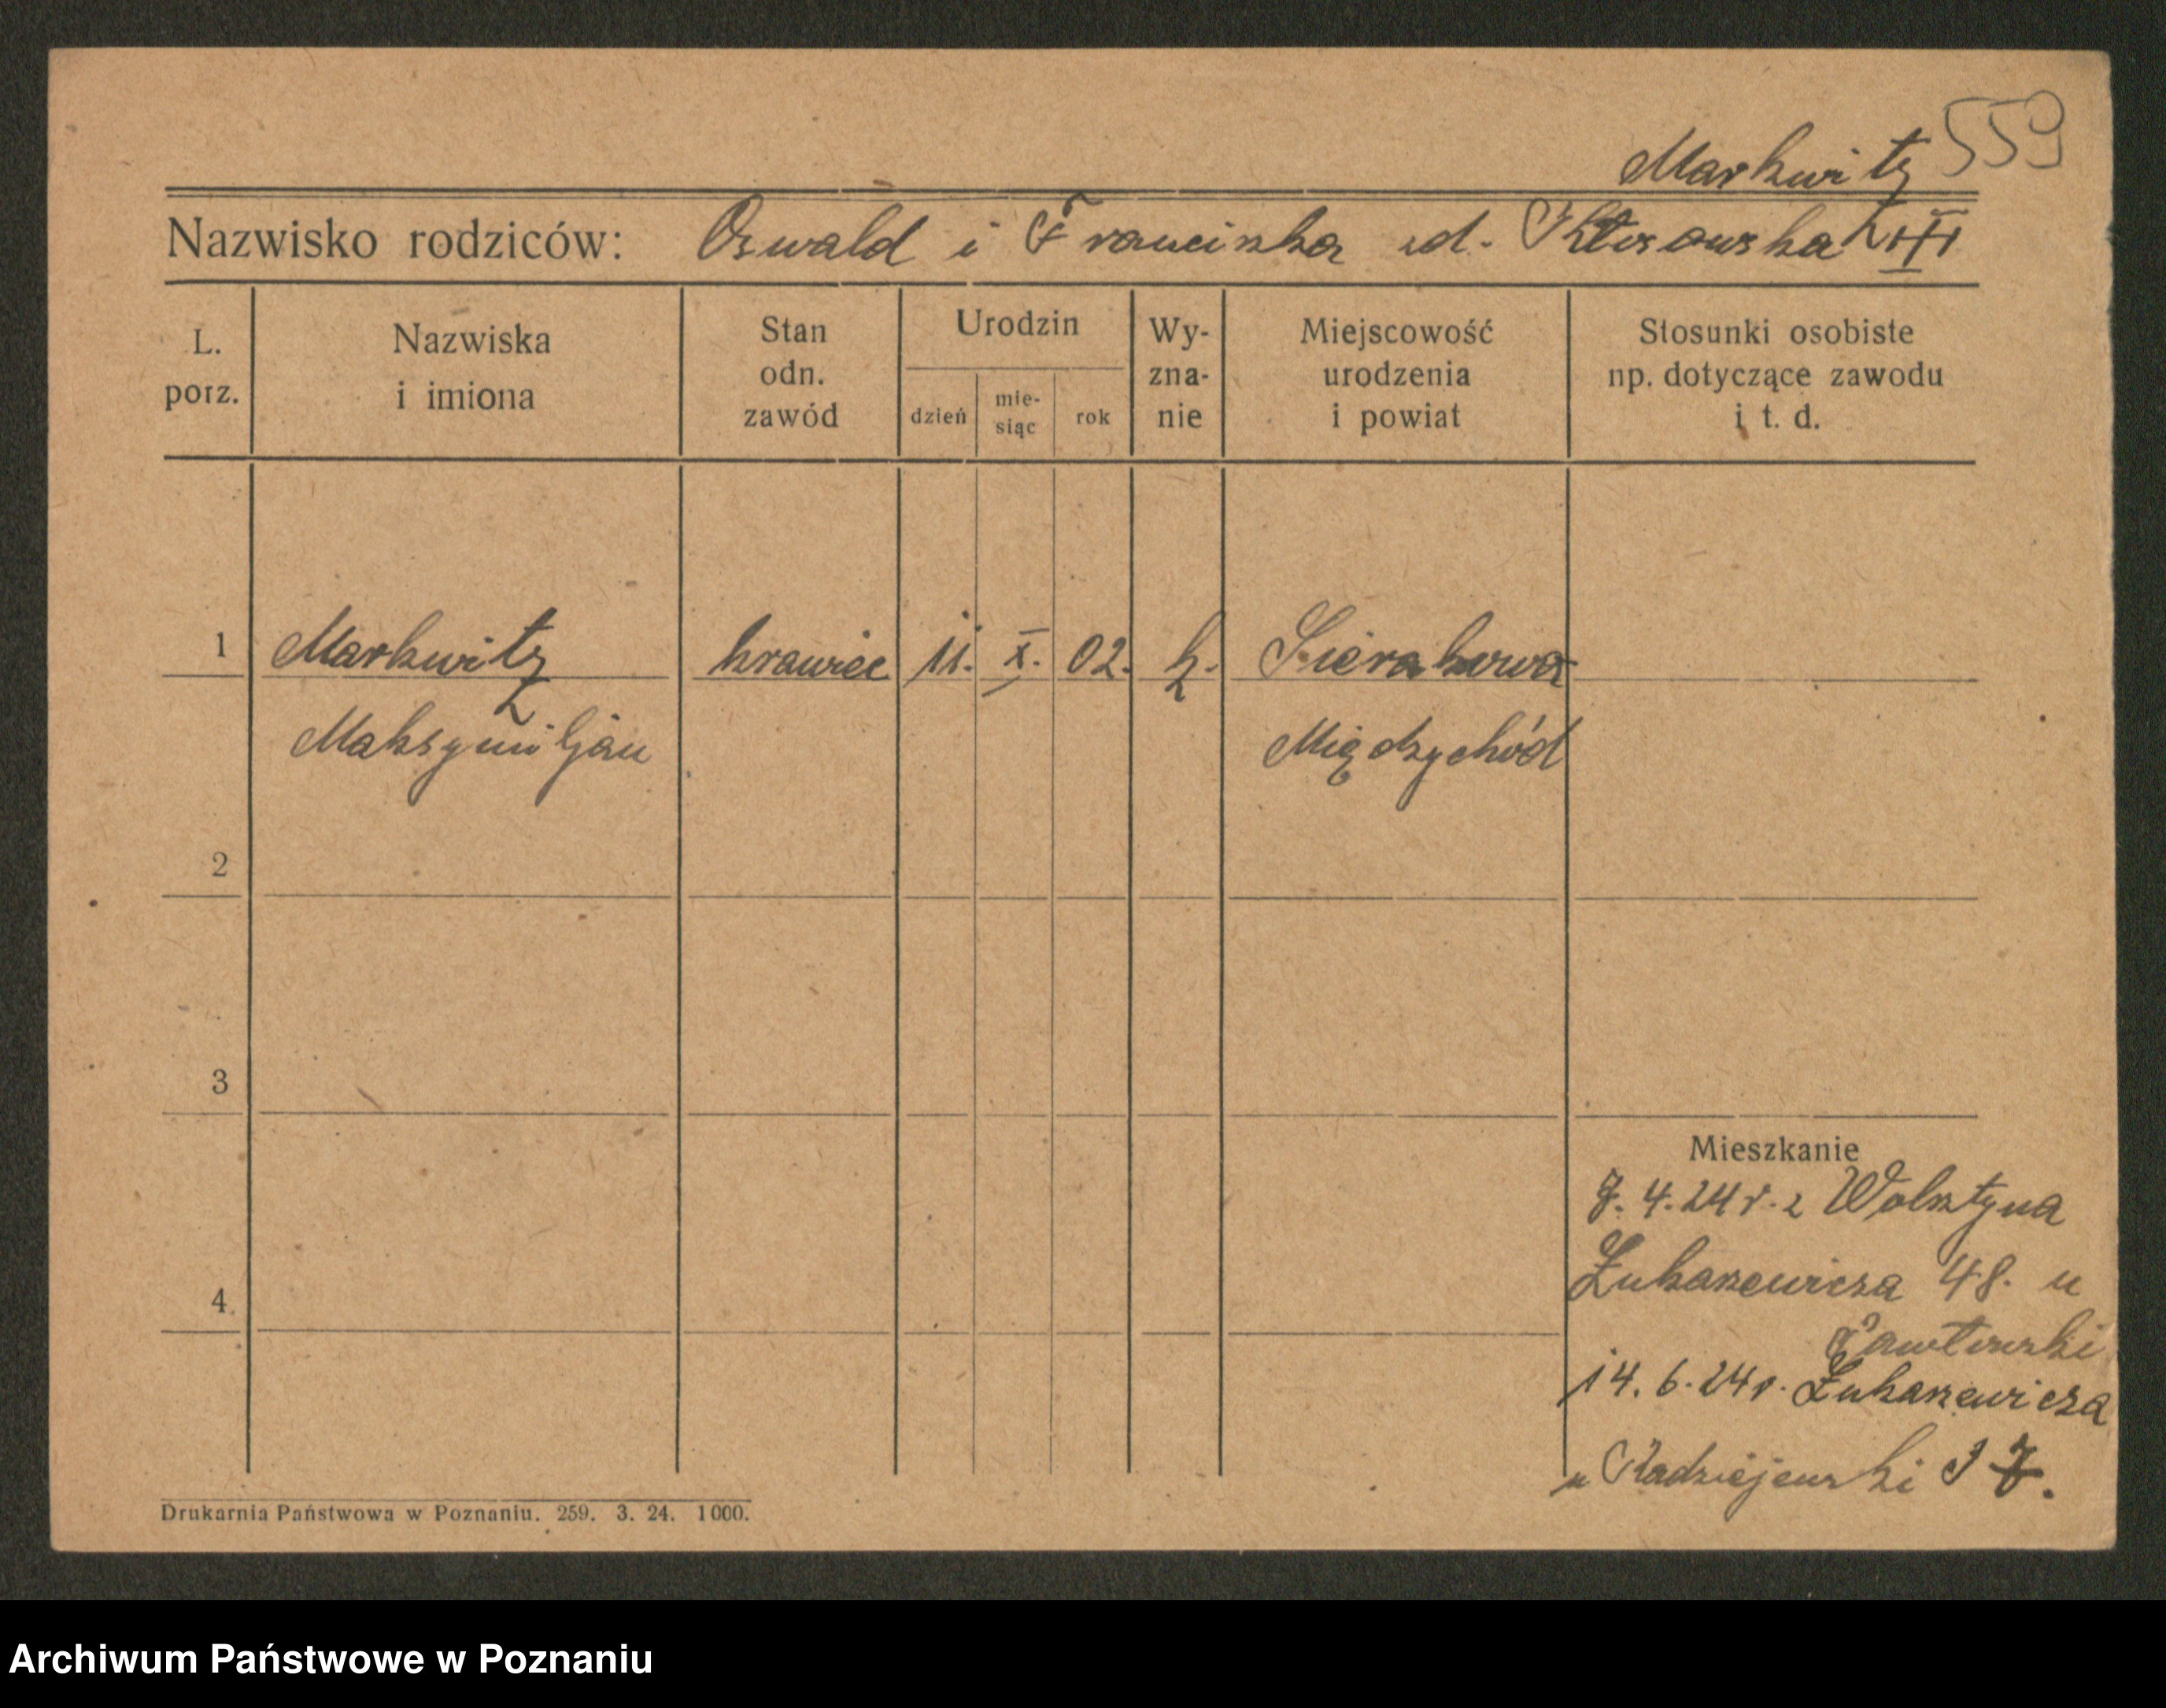 559
Markwitz
Nazwisko rodziców: Oswald i Franciszka ud. III
L. porz.
Nazwiska i imiona
Stan odn. zawód
Urodzin
dzień
mie- siąc
rok
Wy- zna- nie
Miejscowość urodzenia i powiat
Stosunki osobiste np. dotyczące zawodu i t. d.
1 Markwitz krawiec 11. X. 02. k. Sierakowa
Maksymiljan Międzychód
2
3
4
Mieszkanie
7. 4. 24 r. z Wolsztyna
Łukaszewicza 48. u
Pawłowski
14. 6. 24 r. Łukaszewicza
u Radziejewski 17.
Drukarnia Państwowa w Poznaniu. 259. 3. 24. 1000.
Archiwum Państwowe w Poznaniu